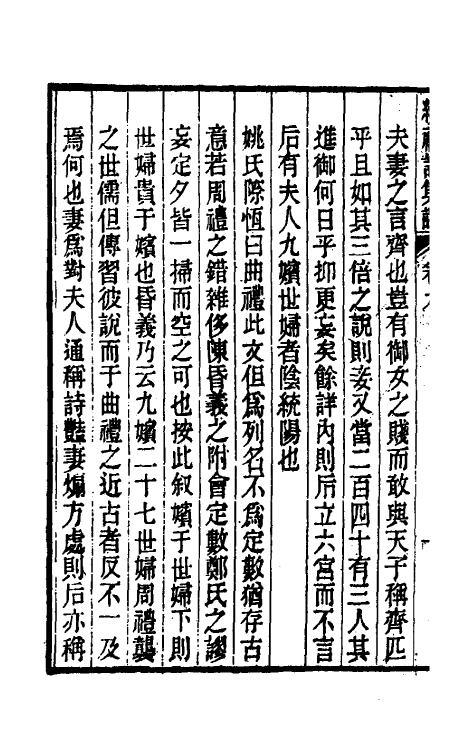 夫妻之言齊也豈有御女之賤而敢與天子稱齊匹
乎且如其三倍之說則妾又當二百四十有三人其
進御何日乎抑更妄矣餘詳內則后立六宮而不言
后有夫人九嬪世婦者陰統陽也
姚氏際恆曰曲禮此文但爲列名不爲定數猶存古
意若周禮之錯雜侈陳昏義之附會定數鄭氏之謬
妄定夕皆一掃而空之可也按此叙嬪于世婦下則
世婦貴于嬪也昏義乃云九嬪二十七世婦周禮襲
之世儒但傳習彼說而于曲禮之近古者反不一及
焉何也妻爲對夫人通稱詩豔妻煽方處則后亦稱